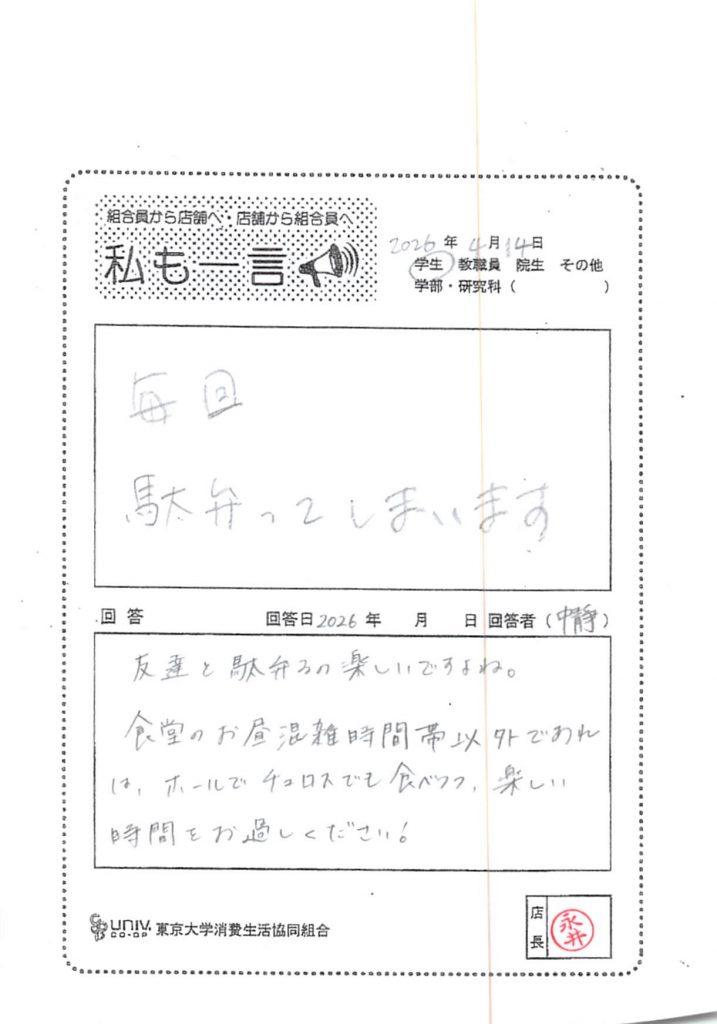 組合員から店舗へ・店舗から組合員へ
私も一言
2026年 4月14日
学生 教職員 院生 その他
学部・研究科( )
毎回
駄弁ってしまいます
回答 回答日2026年 月 日 回答者(中静)
友達と駄弁るの楽しいですよね。
食堂のお昼混雑時間帯以外であれ
ば、ホールでチュロスでも食べつつ、楽しい
時間をお過しください!
UNIV.
CO-OP
東京大学消費生活協同組合
店長
永井